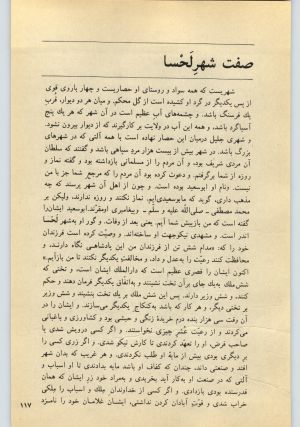 صفت شهرِ لَحْسا
شهریست که همه سواد و روستای او حصاریست و چهار باروی قوی
از پس یکدیگر در گرد او کشیده است از گل محکم، و میان هر دو دیوار، قرب
یک فرسنگ باشد. و چشمه‌های آب عظیم است در آن شهر که هر یک پنج
آسیاگرد باشد، و همه این آب در ولایت بر کار گیرند که از دیوار بیرون نشود.
و شهری جلیل در میان این حصار نهاده است با همه آلتی که در شهرهای
بزرگ باشد. در شهر بیش از بیست هزار مرد سپاهی باشد، و گفتند که سلطان
آن مردی شریف بود، و آن مردم را از مسلمانی بازداشته بود و گفته نماز و
روزه از شما برگرفتم. و دعوت کرده بود آن مردم را که مرجع شما جز با من
نیست. ونام او ابوسعید بوده است. و چون از اهل آن شهر پرسند که چه
مذهب داری، گوید که ما بوسعیدی‌ایم. نماز نکنند و روزه ندارند، ولیکن بر
محمد مصطفی ـ صلی‌الله علیه و سلم ـ وپیغامبری اومقرّند.ابوسعید ایشان‌را
گفته است که من بازپیش شما آیم، یعنی بعد از وفات، و گور او به‌شهر لَحْسا
اندر است، و مشهدی نیکو جهت او ساخته‌اند. و وصیّت کرده است فرزندان
خود را که: «مدام شش تن از فرزندان من این پادشاهی نگاه دارند، و
محافظت کنند رعیّت را به‌عدل و داد، و مخالفت یکدیگر نکنند تا من بازآیم.»
اکنون ایشان را قصری عظیم است که دارالملک ایشان است، و تختی که
شش ملک به‌یک جای برآن تخت نشینند و به‌اتفاق یکدیگر فرمان دهند و حکم
کنند، و شش وزیر دارند. پس این شش ملک بر یک تخت بنشینند و شش وزیر
بر تختی دیگر، و هر کار که باشد به‌کنکاج یکدیگر می‌سازند. و ایشان را در
آن وقت سی هزار بنده درم خریدهٔ زنگی و حبشی بود و کشاورزی و باغبانی
می‌کردند و از رعیّت عُشْر چیزی نخواستند. و اگر کسی درویش شدی یا
صاحب قرض، او را تعهد کردندی تا کارش نیکو شدی. و اگر زری کسی را
بر دیگری بودی بیش از مایهٔ او طلب نکردندی. و هر غریب که بدان شهر
افتد و صنعتی داند، چندان که کفاف او باشد مایه بدادندی تا او اسباب و
آلتی که در صنعت او به‌کار آید بخریدی و به‌مراد خود زرِ ایشان که همان
قدرستده بودی بازدادی. و اگر کسی از خداوندان ملک و اسباب را ملکی
خراب شدی و قوّت آبادان کردن نداشتی، ایشان غلامان خود را نامزد
۱۱۷